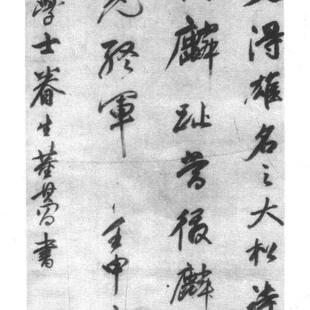 得雄名之大松
麟趾 後麟
終軍 壬申
學士眷生董其昌書